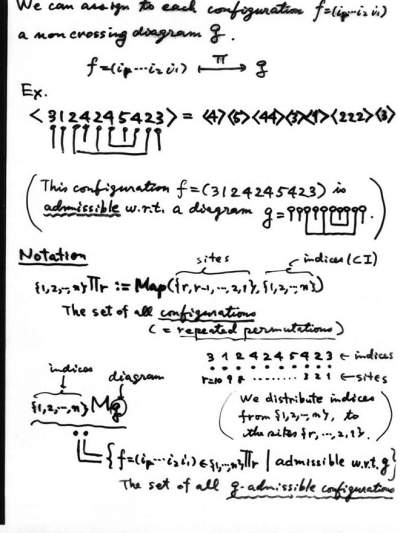 We can assign to each configuration f=(ip...i2 i1)
a noncrossing diagram g.
f=(ip...i2 i1) ⟼ g
π
Ex.
<3124245423> = <4><5><44><3><1><222><3>
(This configuration f=(3124245423) is
admissible w.r.t. a diagram g= .)
Notation
sites
indices (⊂I)
{1,2,...,n}Πr := Map({r,r-1,...,2,1}, {1,2,...,n})
The set of all configurations
(= repeated permutations)
3 1 2 4 2 4 5 4 2 3 ← indices
r=10 9 8 ......... 3 2 1 ← sites
indices
diagram
{1,2,...,n}Mg
(We distribute indices
from {1,2,...,n}, to
the sites {r,...,2,1}.)
{f=(ip...i2 i1) ∈ {1,...,n}Πr | admissible w.r.t. g}
The set of all g-admissible configurations